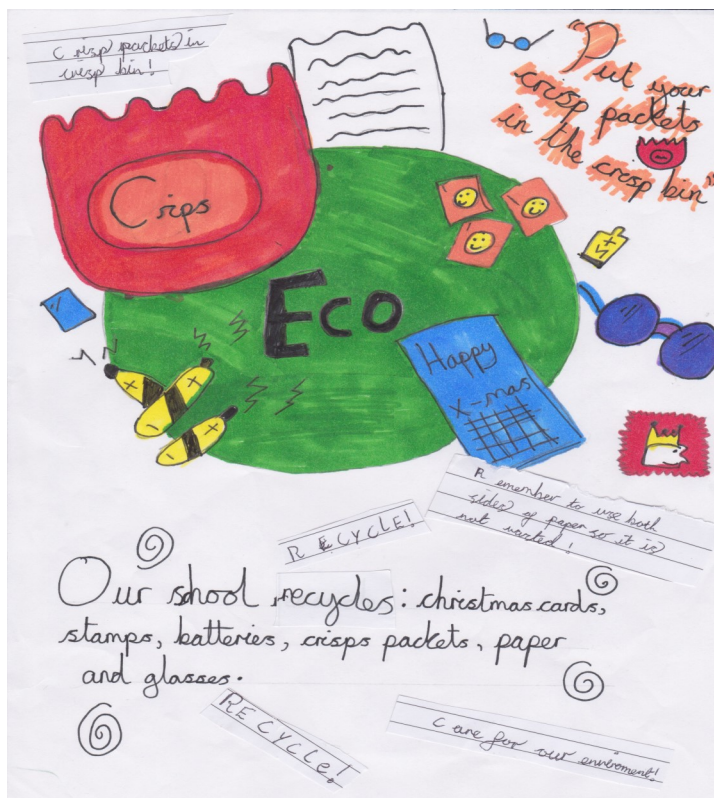 Crisp packets in
crisp bin!
"Put your
crisp packets
in the crisp bin"
Crips
Eco
Happy
X-mas
Remember to use both
sides of paper so it is
not wasted!
RECYCLE!
Our shool recycles: christmas cards,
stamps, batteries, crisps packets, paper
and glasses.
RECYCLE!
Care for our enviroment!